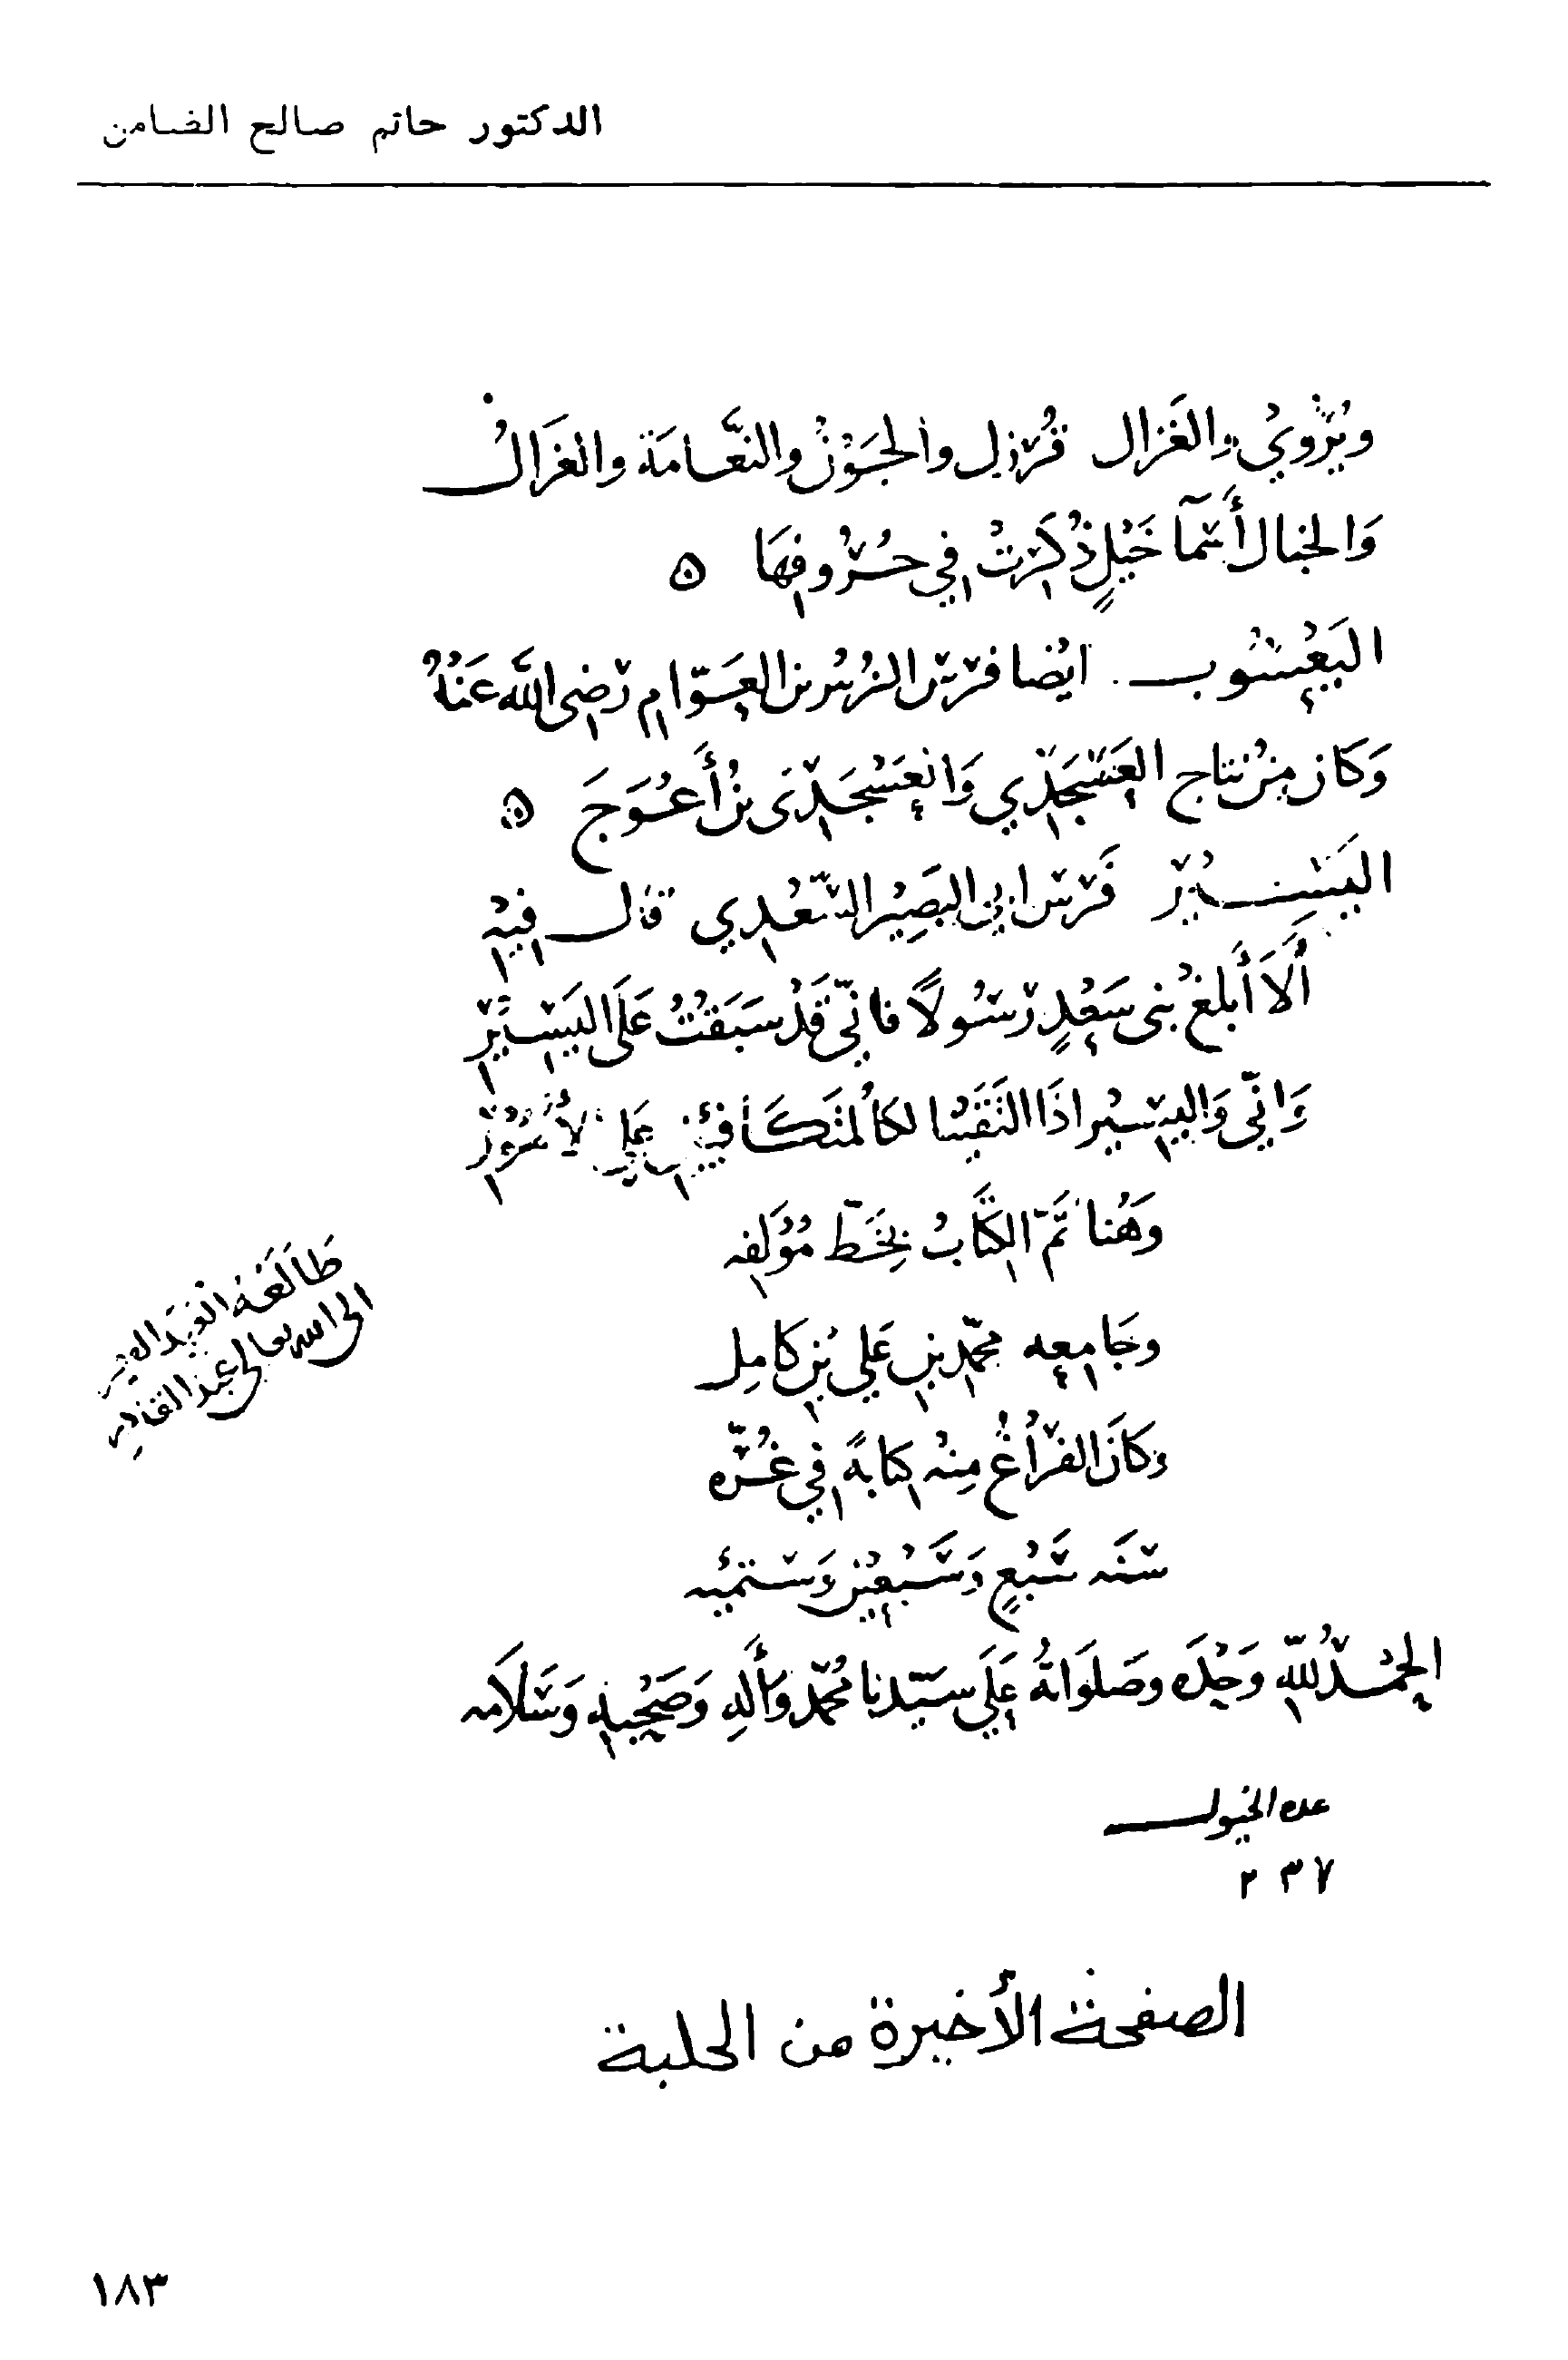 الدكتور حاتم صالح الضامن
ويُرْوى والغَزال قُرْزِل والجَوْنُ والنَّعَامَة والغَزَالُ
وَالخَبال أَسْمَآ خَيْلٍ ذُكِرَتْ فِي حُرُوفِهَا ۞
اليَعْسُوب ايْضا فرَس الزُبَيْر بن العَوّامِ رَضِىَ اللَّه عَنْهُ
وَكَان مِنْ نتاج العَسْجَدِي وَالعَسْجَدِى بنُ أَعْوَجَ ۞
اليَسِيْر فَرَس ابي البَصِيْر السَّعْدِي قال فِيْهِ
أَلَا أَبْلغْ بنى سَعْدٍ رَسُولًا فاني قَدْ سَبَقْتُ عَلَى اليَسِيْرِ
وَانِّي وَاليسِيْر اذَا التَقَيْنا لكالمُتَكَافِيَيْنِ عَلى الأُمُوْرِ
وَهُنا تَمَّ الكِتَابُ بِخَطّ مُؤَلفِه
وجَامِعِه محمّدِ بنِ عَلي بْنِ كامِل
وَكانَ الفرَاغُ مِنْهُ كِتابَةً فِي غُرّه
سَنَه سَبْعٍ وَسَبْعِيْن وَستميْه
الحَمْدُ للَّهِ وَحْدَه وصَلوَاتهُ عَلَى سَيّدنا مُحَمّد وَأَلِهِ وَصَحْبِهِ وَسَلَامه
طَالَعَهُ العَبْد الفقير
الى الله تعالى عبد القادر
عده الخيول
٢٣٧
الصفحة الأخيرة من الحلبة
١٨٣